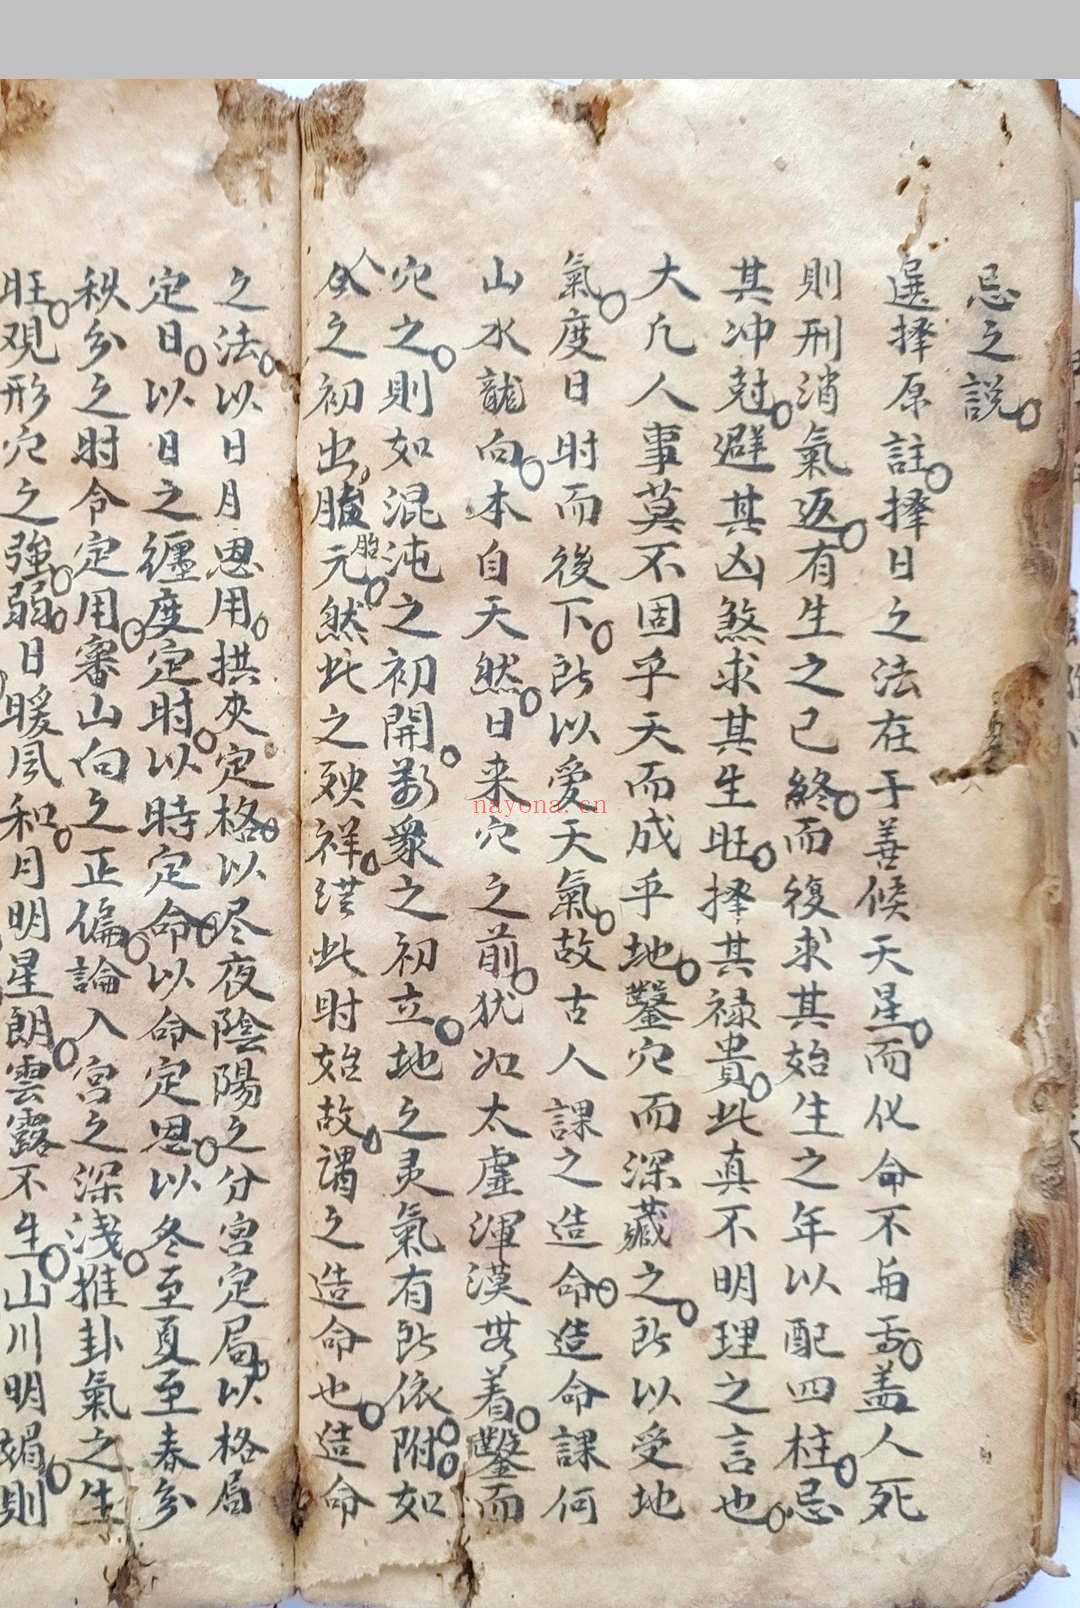 忌之說
選擇原註擇日之法在于善候天星而化命不与焉盖人死
則刑消氣返有生之已終而復求其始生之年以配四柱忌
其冲尅避其凶煞求其生旺擇其禄貴此真不明理之言也
大凡人事莫不固乎天而成乎地鑿穴而深藏之所以受地
氣度日时而後下所以爱天氣故古人課之造命造命課何
山水龍向本自天然日来穴之前犹如太虚渾漠無着鑿而
穴之則如混沌之初開萬衆之初立地之灵氣有所依附如
人之初出胎元然此之殃祥洪此时始故謂之造命也造命
之法以日月恩用拱夾定格以尽夜陰陽之分宮定局以格局
定日以日之纏度定时以時定命以命定恩以冬至夏至春分
秋分之时令定用審山向之正偏論入宮之深浅推卦氣之生
旺观形穴之強弱日暖风和月明星朗雲露不生山川明媚則
nayona.cn